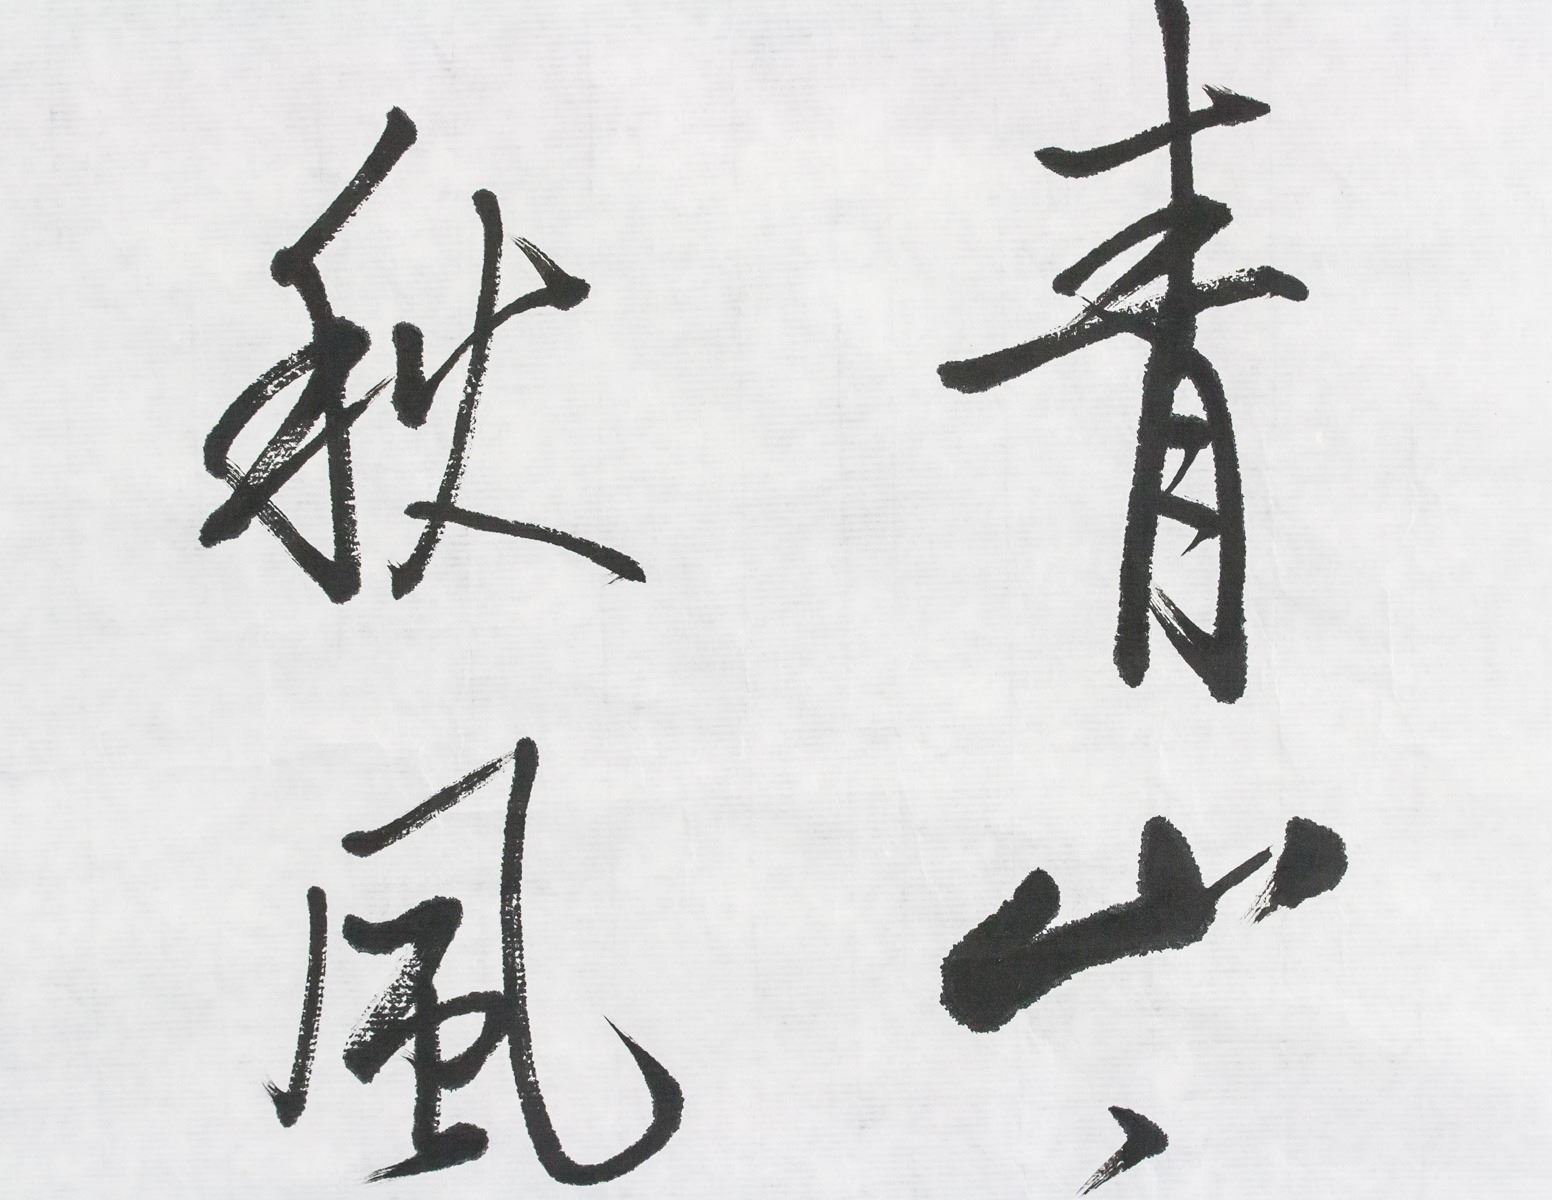 青山
秋風